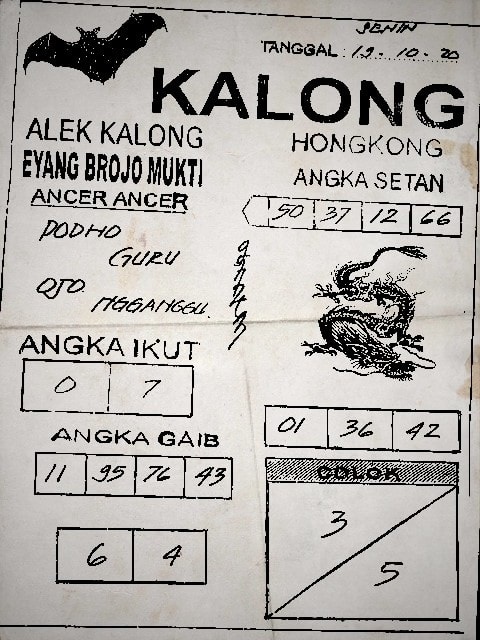 SENIN
TANGGAL : 19 - 10 - 20
KALONG
ALEK KALONG
EYANG BROJO MUKTI
ANCER ANCER
PODHO
GURU
OJO
NGGANGGU.
HONGKONG
ANGKA SETAN
50 37 12 66
ANGKA IKUT
0 7
ANGKA GAIB
11 95 76 43
6 4
01 36 42
COLOK
3
5